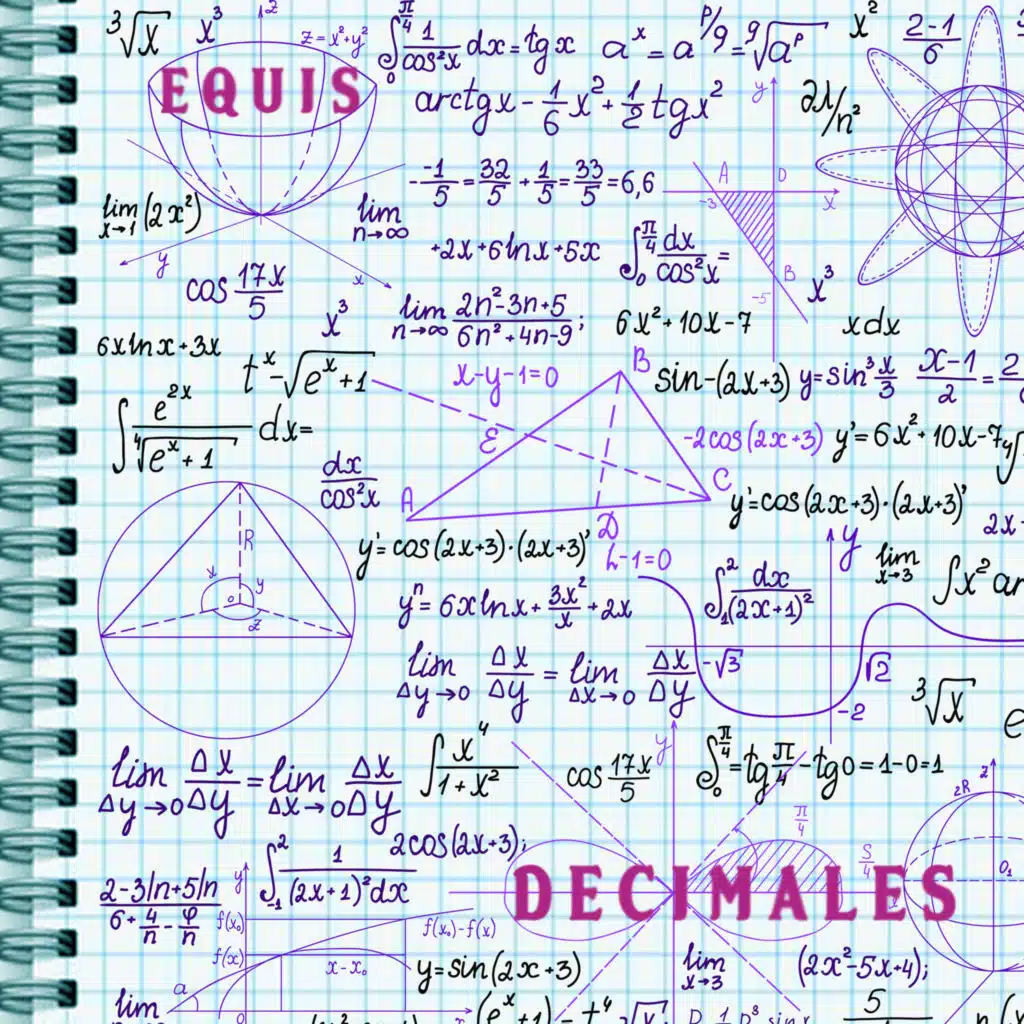 ∛x x³ z z=x²+y² ∫₀^(π/4) 1/cos²x dx=tgx aˣ=a^(p/q)=ᑫ√aᵖ x² (2-1)/6
EQUIS
arctgx-1/6x²+1/2tgx² y 2λ/n²
--1/5=32/5+1/5=33/5=6,6 A D -3 x
lim x→1 (2x²) lim n→∞
+2x+6lnx+5x ∫₀^(π/4) dx/cos²x=
y x cos 17x/5 B -5 x³
x³ lim n→∞ (2n²-3n+5)/(6n²+4n-9); 6x²+10x-7 xdx
6xlnx+3x
tˣ-√(eˣ+1) x-y-1=0 B sin-(2x+3) y=sin³x/3 (x-1)/2=
∫ e²ˣ/∜(eˣ+1) dx= E -2cos(2x+3) y'=6x²+10x-7
dx/cos²x A D C y'=cos(2x+3)·(2x+3)'
2x-
R y'=cos(2x+3)·(2x+3)' h-1=0 y lim x→3 ∫x²ar
x y o z yⁿ=6xlnx+3x²/x+2x ∫₁² dx/(2x+1)²
lim Δy→0 Δx/Δy=lim Δx→0 Δx/Δy -√3 √2
-2 ∛x e
lim Δy→0 Δx/Δy=lim Δx→0 Δx/Δy ∫x⁴/(1+x²) y cos 17x/5 ∫₀^(π/4)=tgπ/4-tg0=1-0=1
z 2R
2cos(2x+3); π/4 S/4
∫₋₁² 1/((2x+1)²dx) O₁
DECIMALES
(2-3/n+5/n)/(6+4/n-φ/n) y f(x₀) f(x₀)-f(x)
f(x) x-x₀ y=sin(2x+3) lim x→3 (2x²-5x+4);
a
lim o x (eˣ+1)-t⁴ √x 5